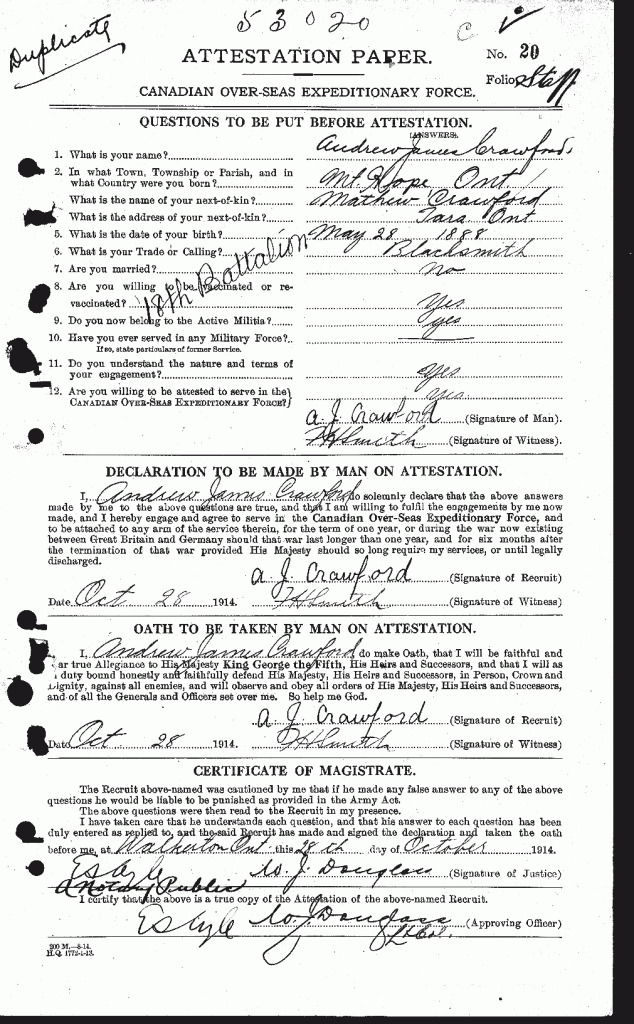 53020
Duplicate
ATTESTATION PAPER.
No. 20
Folio. Staff
CANADIAN OVER-SEAS EXPEDITIONARY FORCE.
QUESTIONS TO BE PUT BEFORE ATTESTATION.
(ANSWERS).
1. What is your name? Andrew James Crawford
2. In what Town, Township or Parish, and in
what Country were you born? Mt. Hope Ont.
What is the name of your next-of-kin? Mathew Crawford
What is the address of your next-of-kin? Tara Ont
5. What is the date of your birth? May 28 1888
6. What is your Trade or Calling? Blacksmith
7. Are you married? No
18th Battalion
8. Are you willing to be vaccinated or re-
vaccinated? Yes
9. Do you now belong to the Active Militia? yes
10. Have you ever served in any Military Force?
If so, state particulars of former Service.
11. Do you understand the nature and terms of
your engagement? Yes
12. Are you willing to be attested to serve in the
CANADIAN OVER-SEAS EXPEDITIONARY FORCE? Yes
A. J. Crawford (Signature of Man).
FHSmith (Signature of Witness).
DECLARATION TO BE MADE BY MAN ON ATTESTATION.
I, Andrew James Crawford do solemnly declare that the above answers
made by me to the above questions are true, and that I am willing to fulfil the engagements by me now
made, and I hereby engage and agree to serve in the Canadian Over-Seas Expeditionary Force, and
to be attached to any arm of the service therein, for the term of one year, or during the war now existing
between Great Britain and Germany should that war last longer than one year, and for six months after
the termination of that war provided His Majesty should so long require my services, or until legally
discharged.
A J Crawford (Signature of Recruit)
Date Oct 28 1914. FHSmith (Signature of Witness)
OATH TO BE TAKEN BY MAN ON ATTESTATION.
I, Andrew James Crawford do make Oath, that I will be faithful and
ar true Allegiance to His Majesty King George the Fifth, His Heirs and Successors, and that I will as
duty bound honestly and faithfully defend His Majesty, His Heirs and Successors, in Person, Crown and
Dignity, against all enemies, and will observe and obey all orders of His Majesty, His Heirs and Successors,
and of all the Generals and Officers set over me. So help me God.
A J Crawford (Signature of Recruit)
Date Oct 28 1914. FHSmith (Signature of Witness)
CERTIFICATE OF MAGISTRATE.
The Recruit above-named was cautioned by me that if he made any false answer to any of the above
questions he would be liable to be punished as provided in the Army Act.
The above questions were then read to the Recruit in my presence.
I have taken care that he understands each question, and that his answer to each question has been
duly entered as replied to, and the said Recruit has made and signed the declaration and taken the oath
before me, at Walkerton Ont this 28th day of October 1914.
W. J. Douglass (Signature of Justice)
a Notary Public
I certify that the above is a true copy of the Attestation of the above-named Recruit.
W. J. Douglass (Approving Officer)
Lt Col.
200 M.—8-14.
H.Q. 1772-1-13.